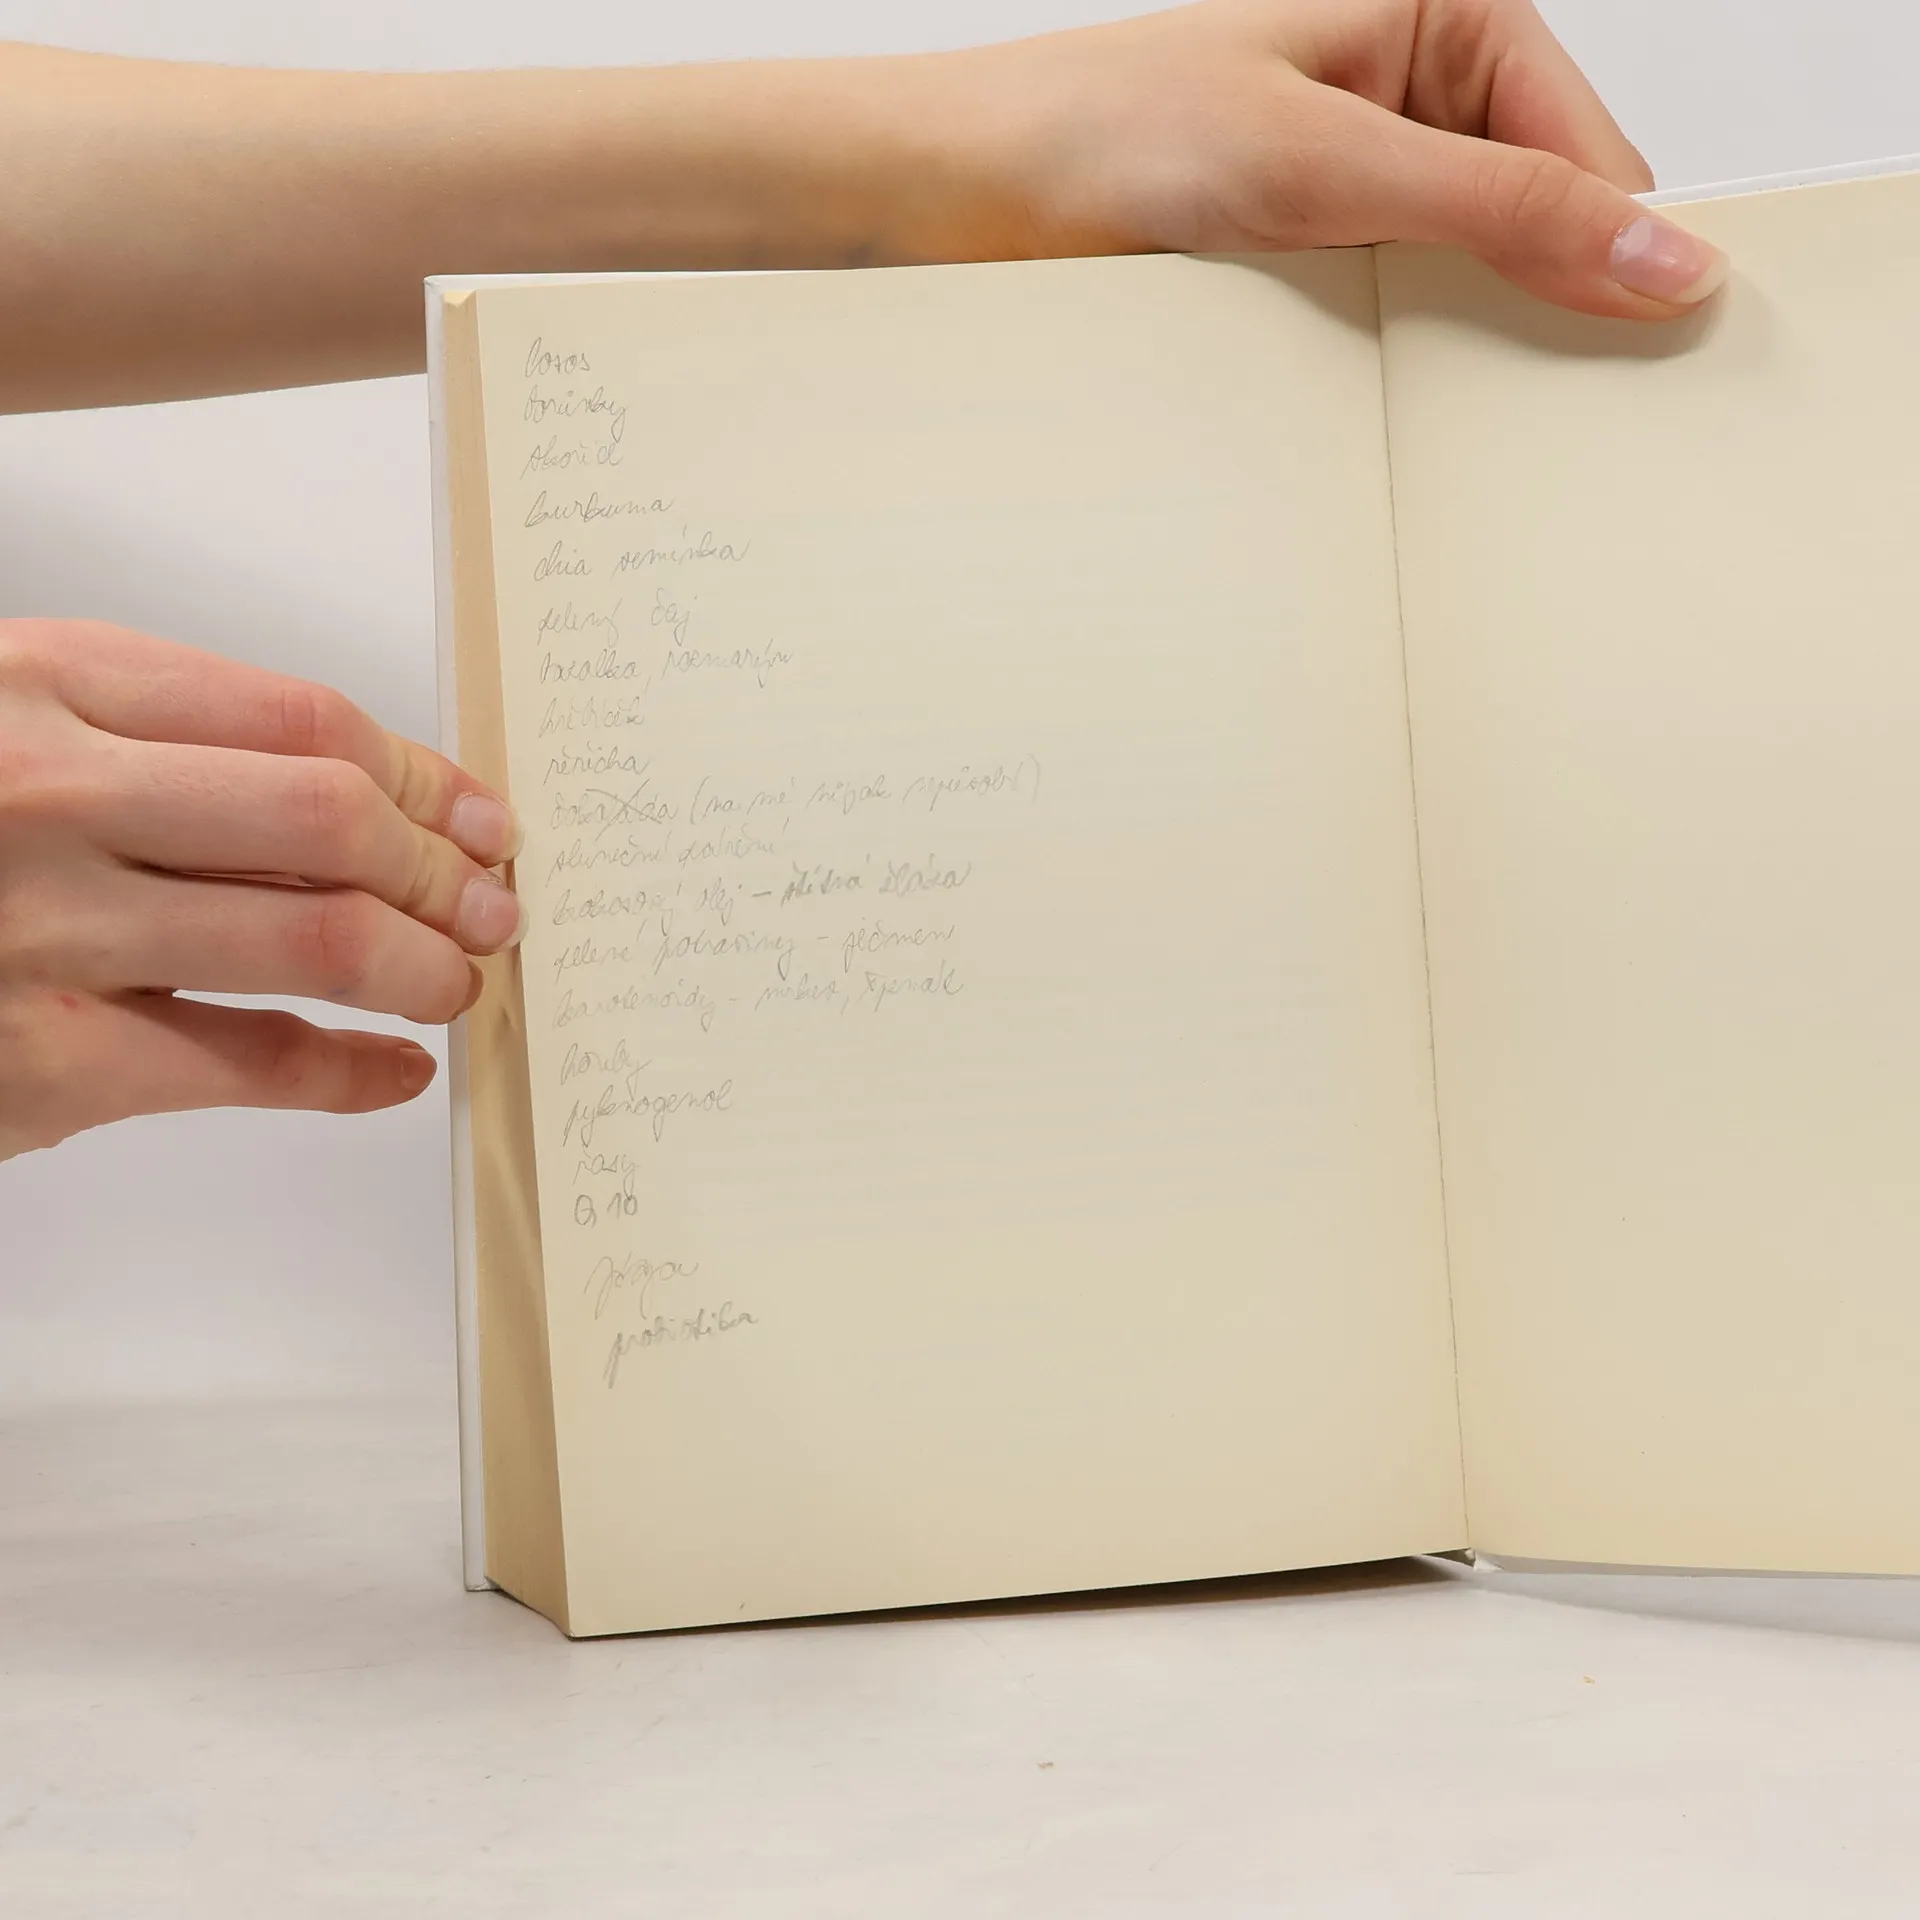 losos
borůvky
skořice
kurkuma
chia semínka
zelený čaj
bazalka, rozmarýn
hřebíček
řeřicha
čokoláda (na mě nijak nepůsobí)
sluneční záření
kokosový olej – štítná žláza
zelené potraviny – ječmen
karotenoidy – mrkev, špenát
houby
pyknogenol
řasy
Q 10
jóga
probiotika